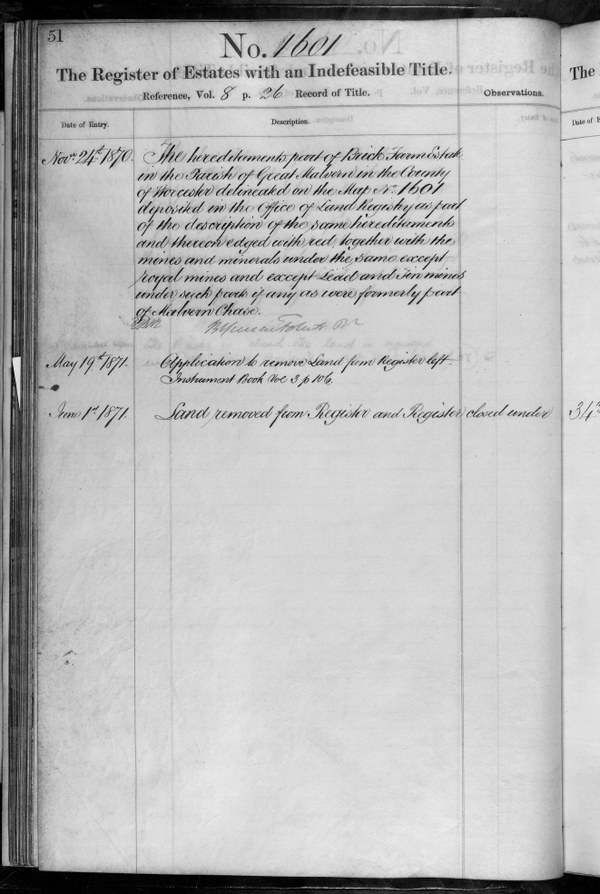 51
No. 1601
The Register of Estates with an Indefeasible Title.
Reference, Vol. 8 p. 26 Record of Title.
Observations.
Date of Entry.
Description.
Novr. 24th 1870.
The hereditaments part of Brick Farm Estate
in the Parish of Great Malvern in the County
of Worcester delineated on the Map No. 1601
deposited in the Office of Land Registry as part
of the description of the same hereditaments
and thereon edged with red, together with the
mines and minerals under the same except
royal mines and except Lead and Tin mines
under such parts if any as were formerly part
of Malvern Chase.
May 19th 1871.
Application to remove Land from Register left
Instrument Book Vol 3 p 106.
June 1st 1871.
Land removed from Register and Register closed under
The
Date of E
34th